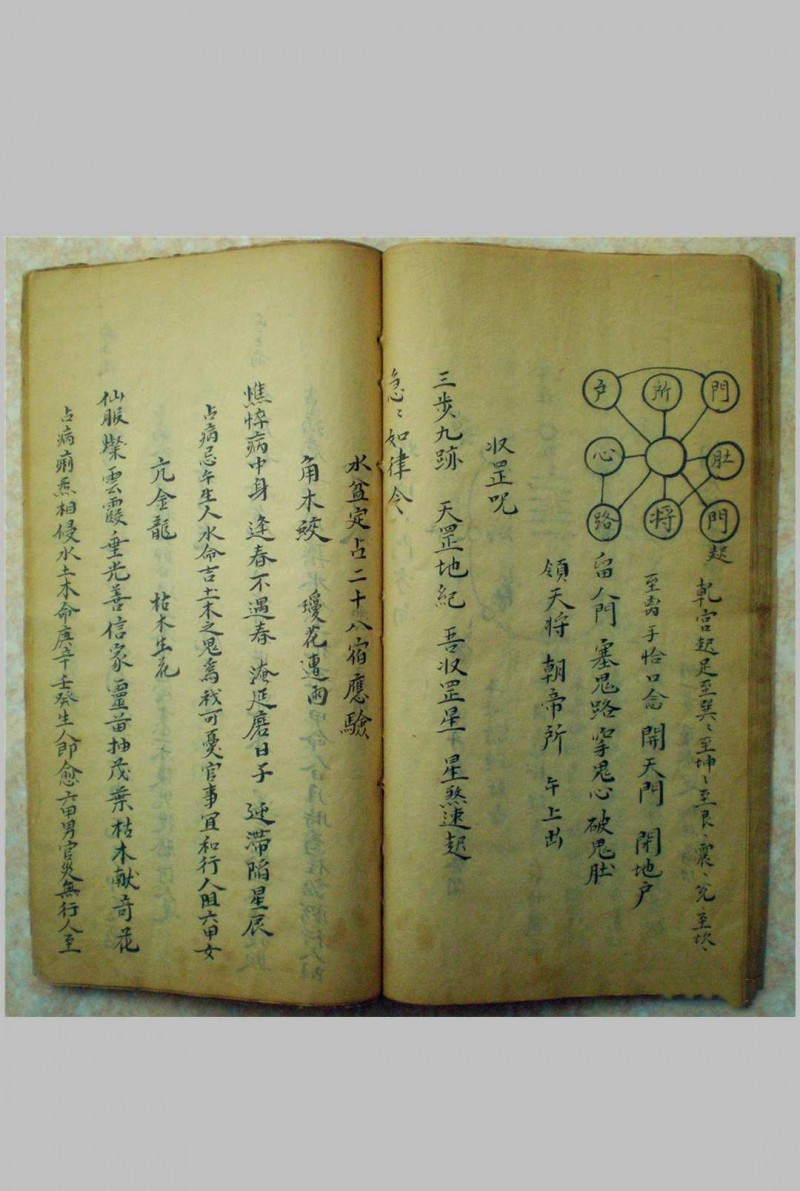 戶 所 門
心 肚
路 將 門
起
乾宮起足至巽〻至坤〻至艮〻震〻兌至坎〻
至离手恰口念 開天門 閉地户
留人門 塞鬼路 穿鬼心 破鬼肚
領天将 朝帝所 午上出
收罡呪
三步九跡 天罡地紀 吾收罡星 星煞速起
急〻如律令〻
水盆定占二十八宿應驗
角木蛟 瓊花遭雨
憔悴病中身 逢春不遇春 淹延磨日子 迍滯陷星辰
占病忌午生人水命吉土木之鬼為我可憂官事宜和行人阻六甲女
亢金龍 枯木生花
仙服燦雲霞 垂光善信家 靈苗抽茂葉 枯木献奇花
占病煞相侵水土木命庚辛壬癸生人即愈六甲男官災無行人至